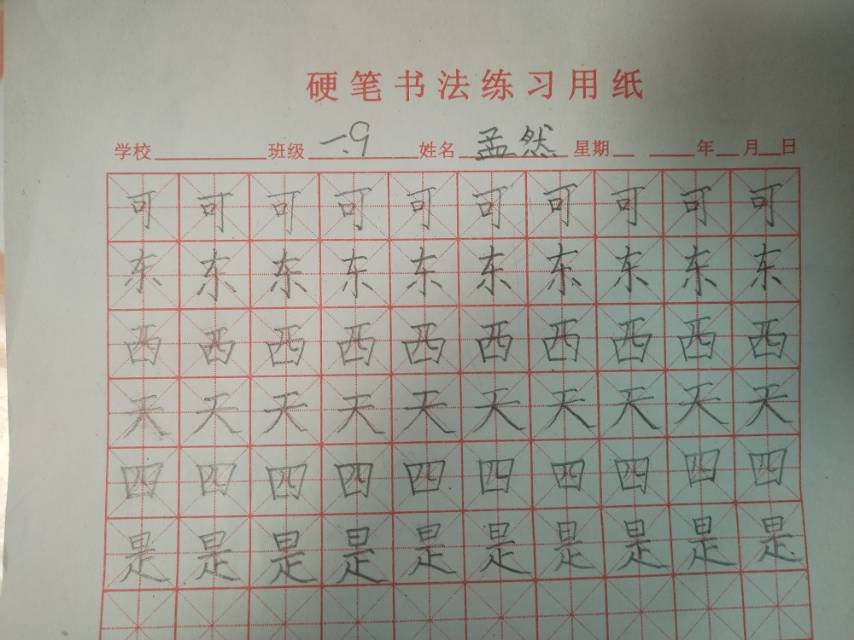 硬笔书法练习用纸
学校 班级 一.9 姓名 孟然 星期 年 月 日
可 可 可 可 可 可 可 可 可 可
东 东 东 东 东 东 东 东 东 东
西 西 西 西 西 西 西 西 西 西
天 天 天 天 天 天 天 天 天 天
四 四 四 四 四 四 四 四 四 四
是 是 是 是 是 是 是 是 是 是